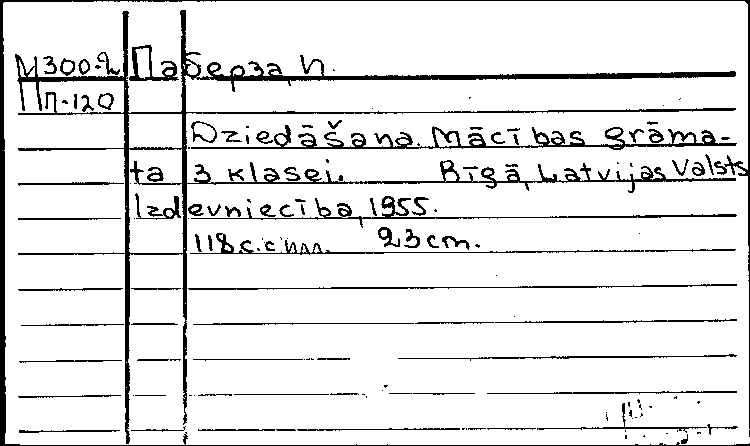 М300-2 Паберза, И.
Пп-120
Dziedāšana. Mācības grāma-
ta 3 klasei. Rīgā, Latvijas Valsts
Izdevniecība, 1955.
118 с. с илл. 23 cm.